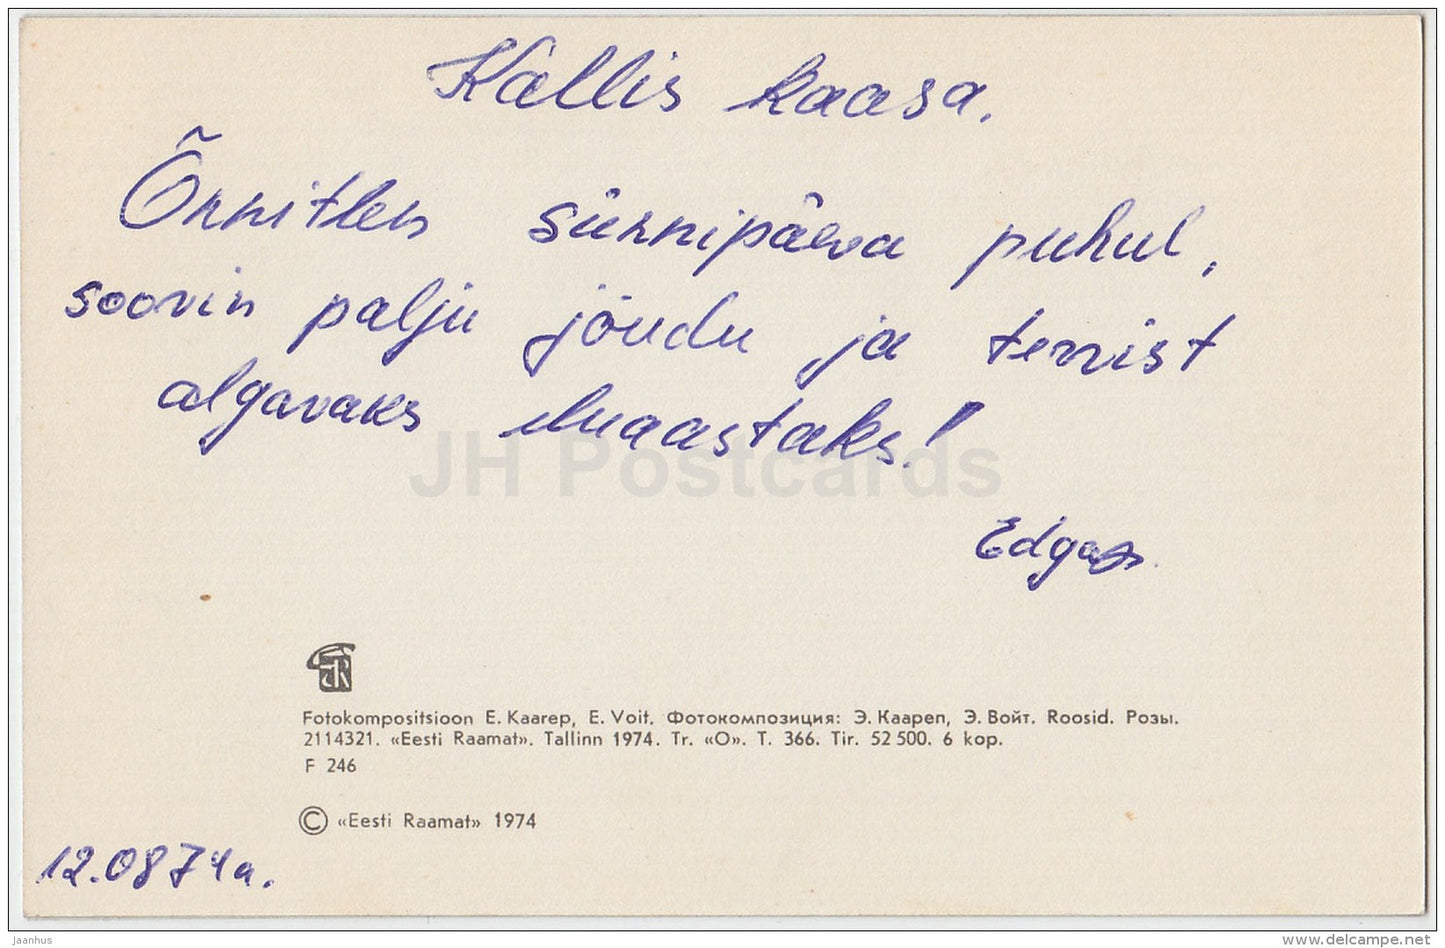 Kallis kaasa.
Õnnitlen sünnipäeva puhul,
soovin palju jõudu ja tervist
algavaks eluaastaks!
Edgar.
JH Postcards
Fotokompositsioon E. Kaarep, E. Voit. Фотокомпозиция: Э. Каареп, Э. Войт. Roosid. Розы.
2114321. «Eesti Raamat». Tallinn 1974. Tr. «O». T. 366. Tir. 52 500. 6 kop.
F 246
© «Eesti Raamat» 1974
12.08 74a.
jaanhus
www.delcampe.net